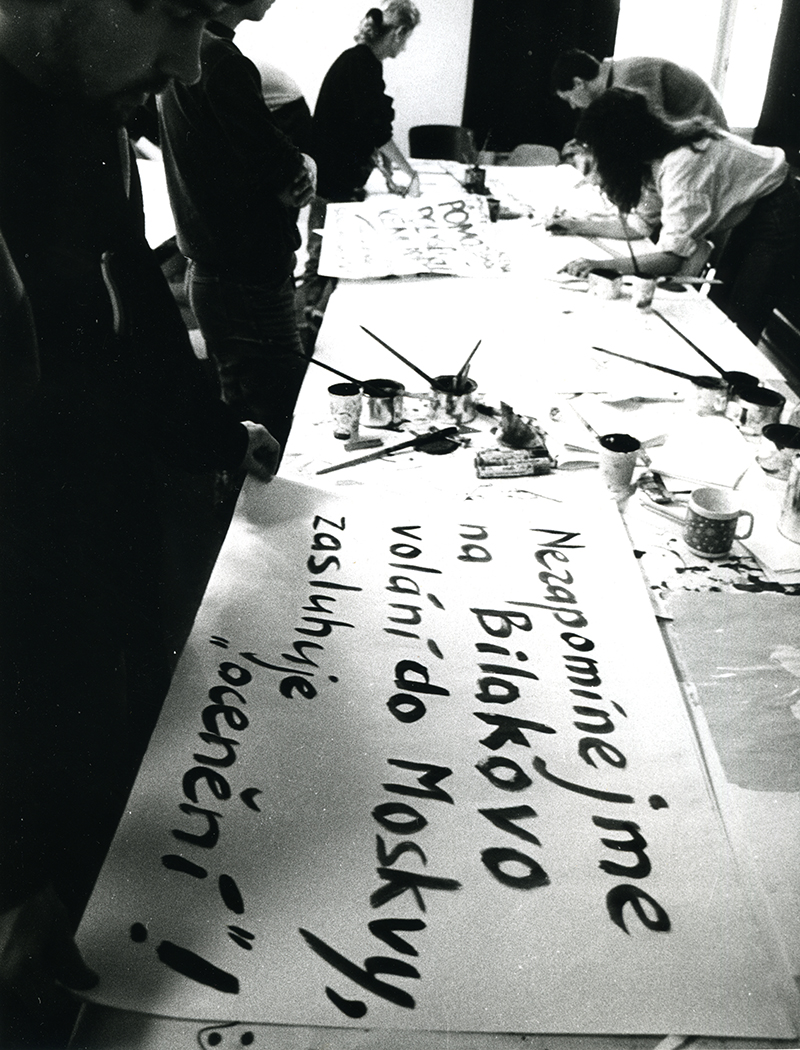 Nezapomínejme
na Bilakovo
volání do Moskvy,
zasluhuje
„ocenění“!